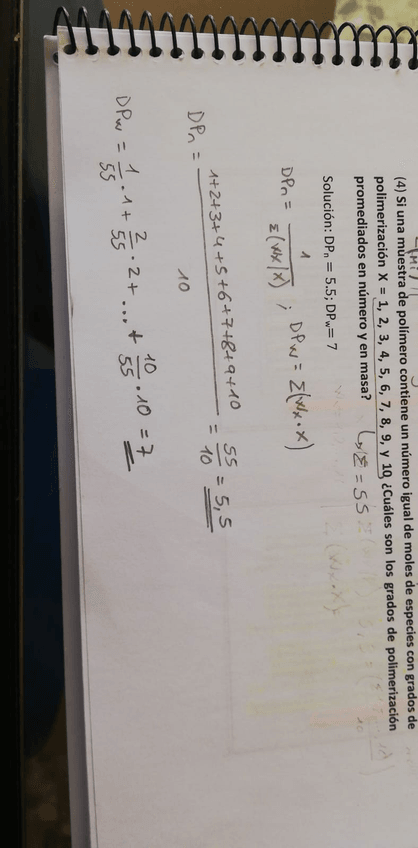 (4) Si una muestra de polímero contiene un número igual de moles de especies con grados de
polimerización X = 1, 2, 3, 4, 5, 6, 7, 8, 9, y 10 ¿Cuáles son los grados de polimerización
promediados en número y en masa?
↳ Σ = 55
Solución: DPn = 5.5; DPw= 7
DPn = 1 / Σ(Wx/X) ; DPw = Σ(Wx·X)
DPn = 1+2+3+4+5+6+7+8+9+10 / 10 = 55/10 = 5,5
DPw = 1/55 · 1 + 2/55 · 2 + ... + 10/55 · 10 = 7